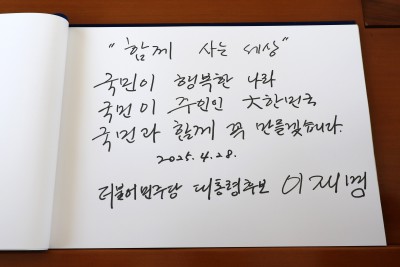 "함께 사는 세상"
국민이 행복한 나라
국민이 주인인 大한민국
국민과 함께 꼭 만들겠습니다.
2025.4.28.
더불어민주당 대통령후보 이재명